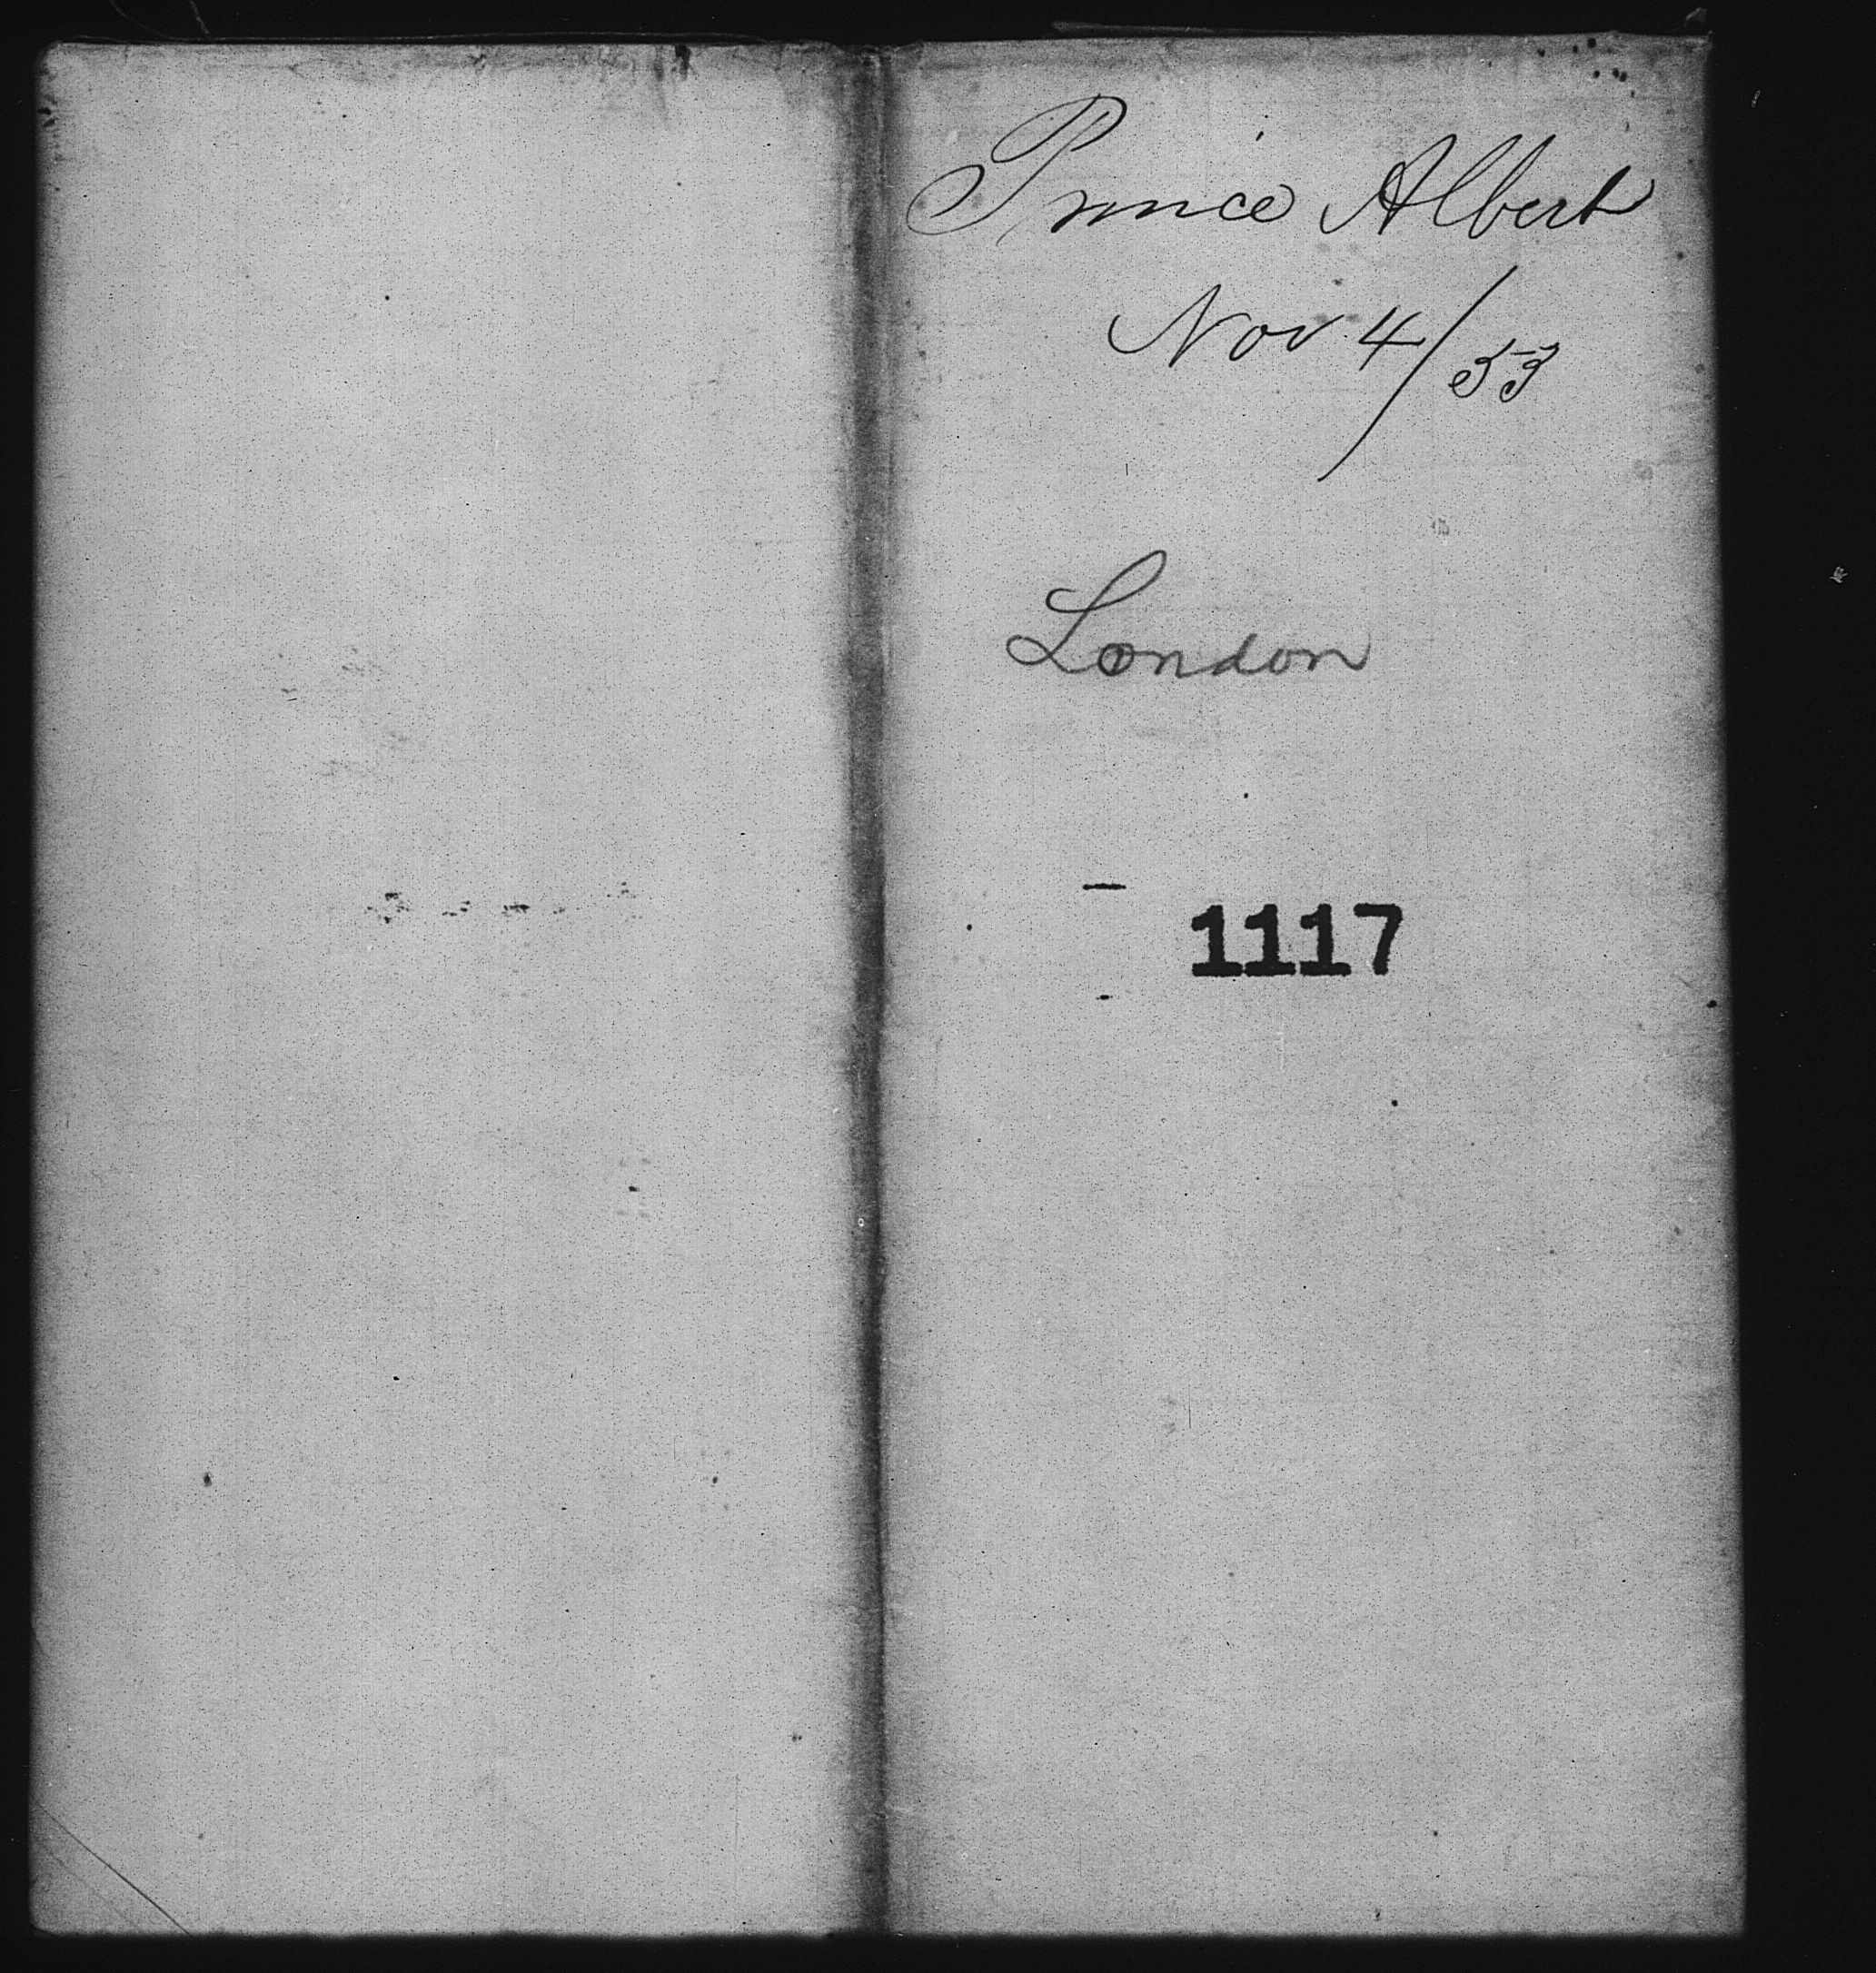 Prince Albert
Nov. 4/53
London
1117